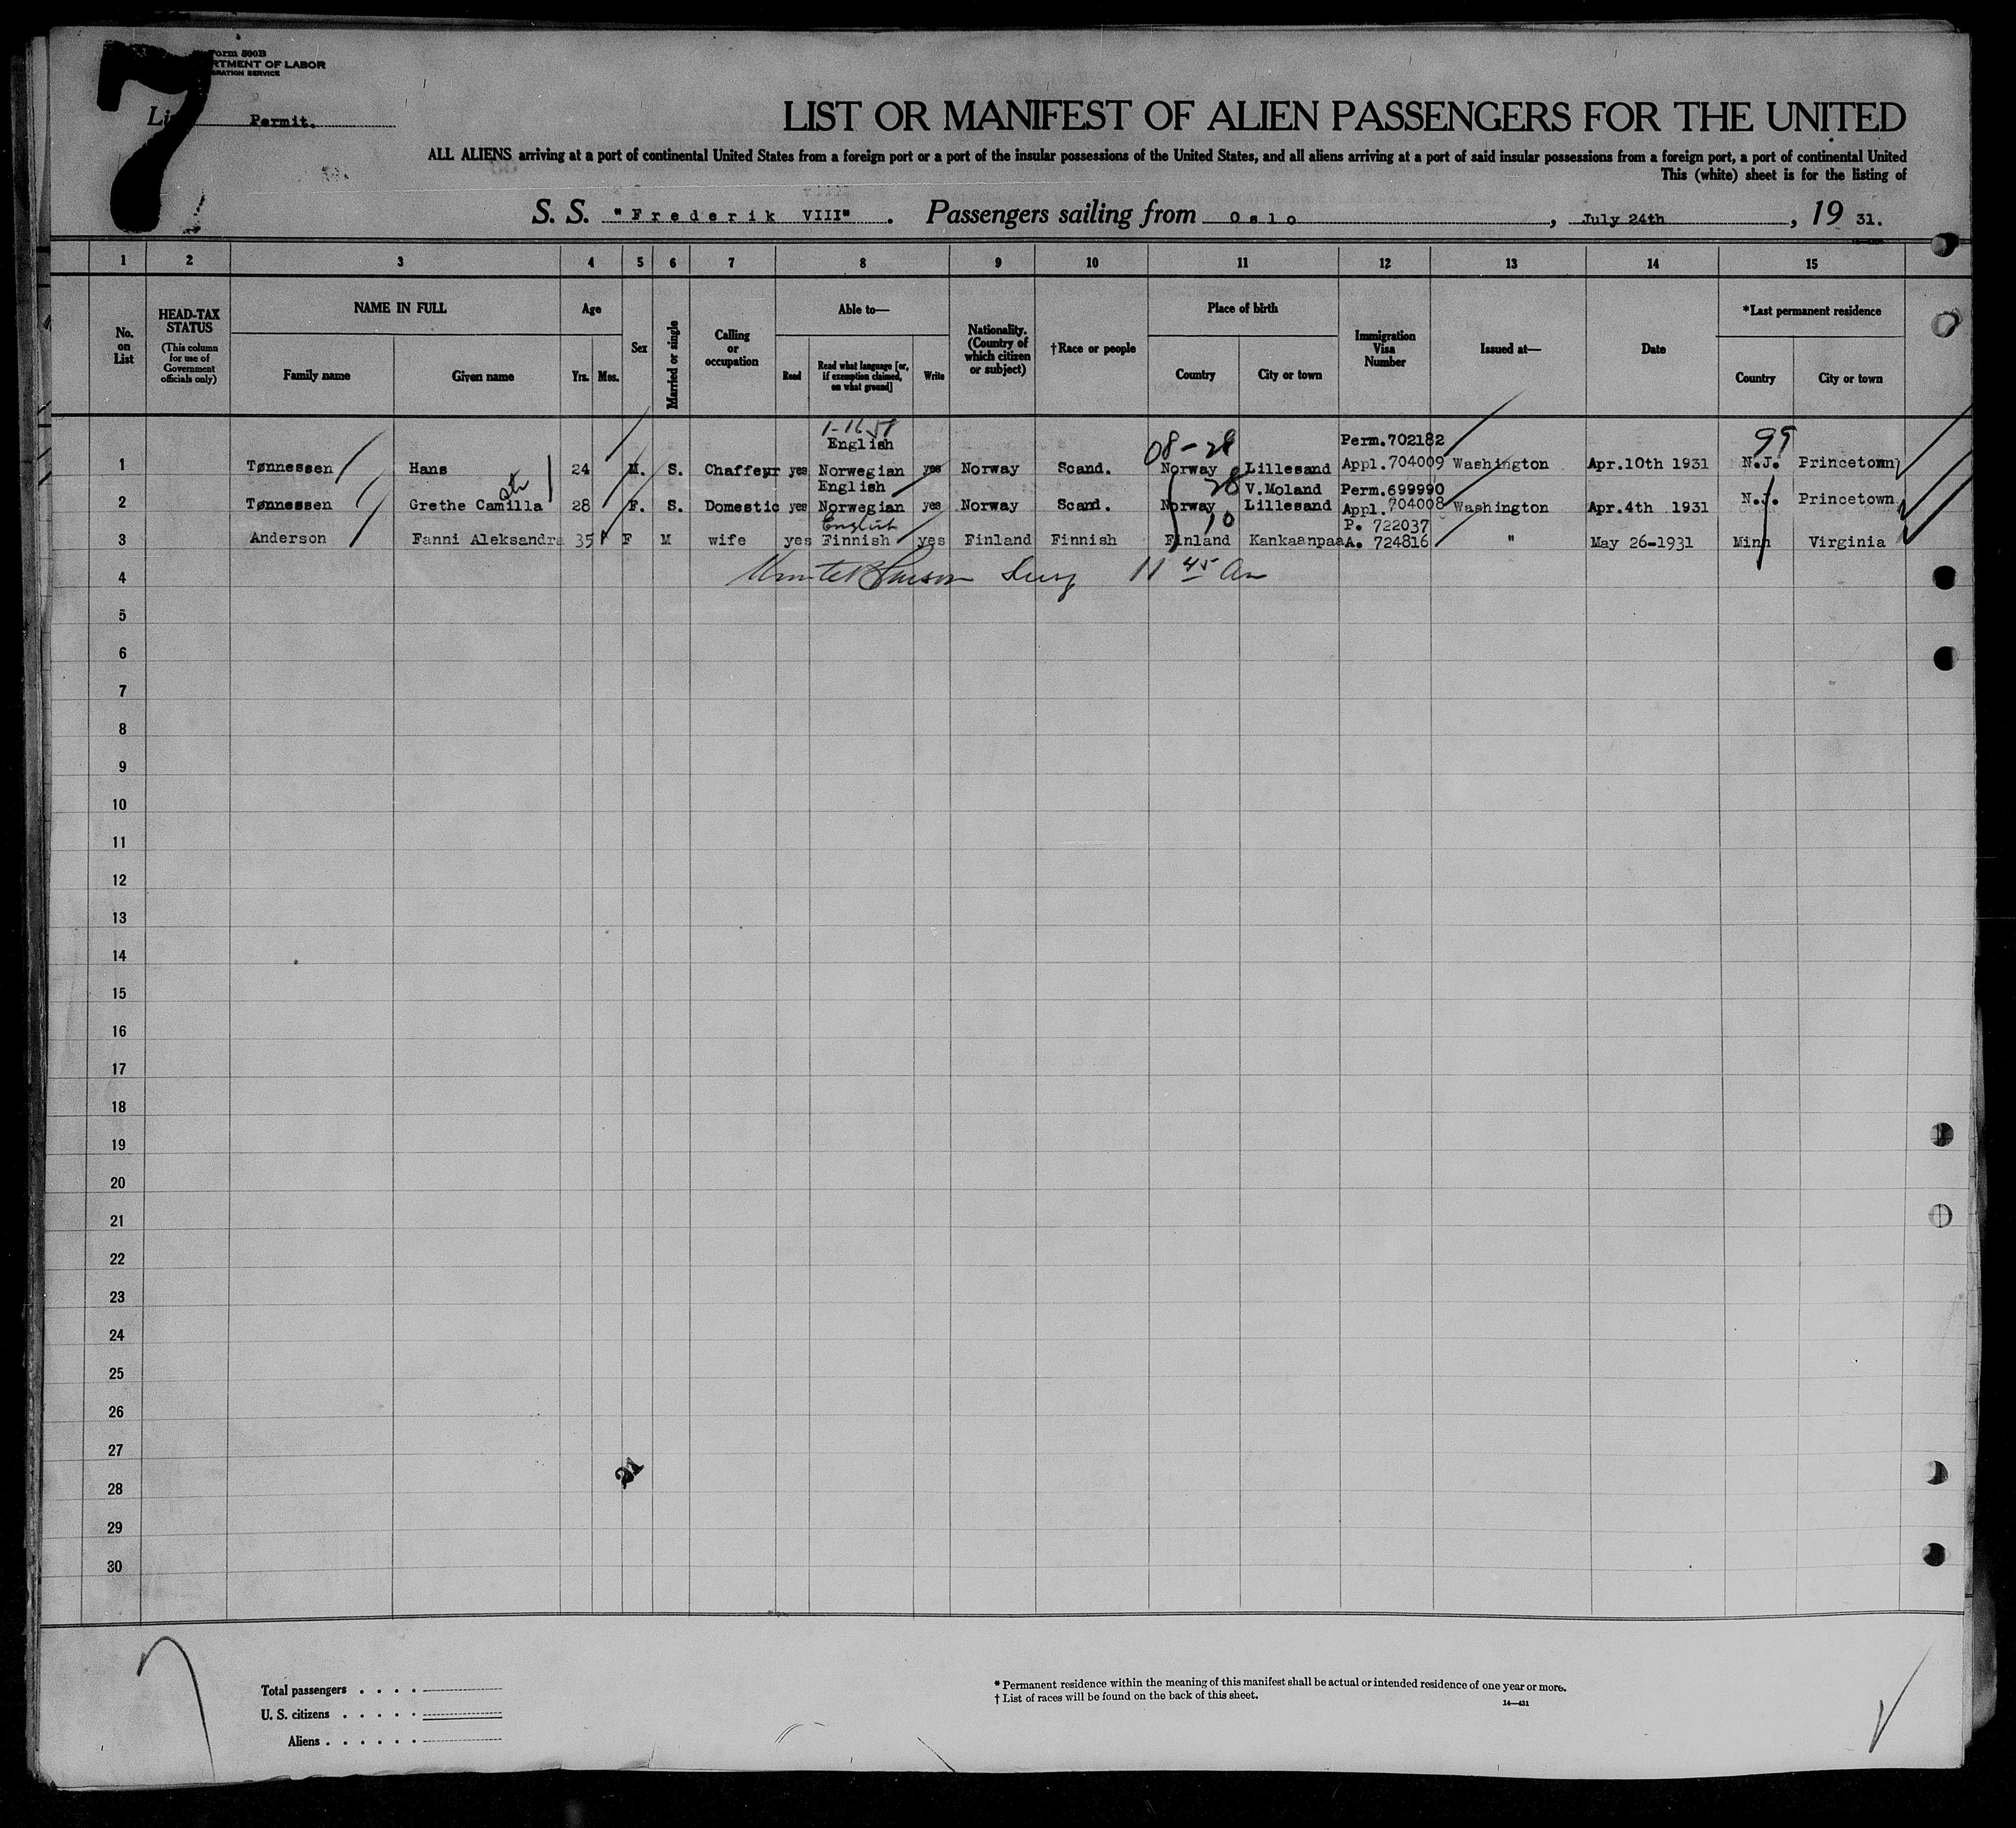 Form 500B
RTMENT OF LABOR
GRATION SERVICE
7
Li Permit.
LIST OR MANIFEST OF ALIEN PASSENGERS FOR THE UNITED
ALL ALIENS arriving at a port of continental United States from a foreign port or a port of the insular possessions of the United States, and all aliens arriving at a port of said insular possessions from a foreign port, a port of continental United
This (white) sheet is for the listing of
S. S. "Frederik VIII". Passengers sailing from Oslo, July 24th, 19 31.
1 2 3 4 5 6 7 8 9 10 11 12 13 14 15
No. on List
HEAD-TAX STATUS
(This column for use of Government officials only)
NAME IN FULL
Family name Given name
Age
Yrs. Mos.
Sex
Married or single
Calling or occupation
Able to—
Read Read what language [or, if exemption claimed, on what ground] Write
Nationality. (Country of which citizen or subject)
†Race or people
Place of birth
Country City or town
Immigration Visa Number
Issued at—
Date
*Last permanent residence
Country City or town
English 08-28 Perm.702182 99
1 Tønnessen Hans 24 M. S. Chaffeur yes Norwegian yes Norway Scand. Norway Lillesand Appl.704009 Washington Apr.10th 1931 N.J. Princetown
English 28 V.Moland Perm.699990
2 Tønnessen Grethe Camilla 28 F. S. Domestic yes Norwegian yes Norway Scand. Norway Lillesand Appl.704008 Washington Apr.4th 1931 N.J. Princetown
English 10 P. 722037
3 Anderson Fanni Aleksandra 35 F M wife yes Finnish yes Finland Finnish Finland Kankaanpaa A. 724816 " May 26-1931 Minn Virginia
4 Surg 11 45 Am
5
6
7
8
9
10
11
12
13
14
15
16
17
18
19
20
21
22
23
24
25
26
27
28
29
30
Total passengers . . . .
U. S. citizens . . . . .
Aliens . . . . . .
* Permanent residence within the meaning of this manifest shall be actual or intended residence of one year or more.
† List of races will be found on the back of this sheet.
14—431